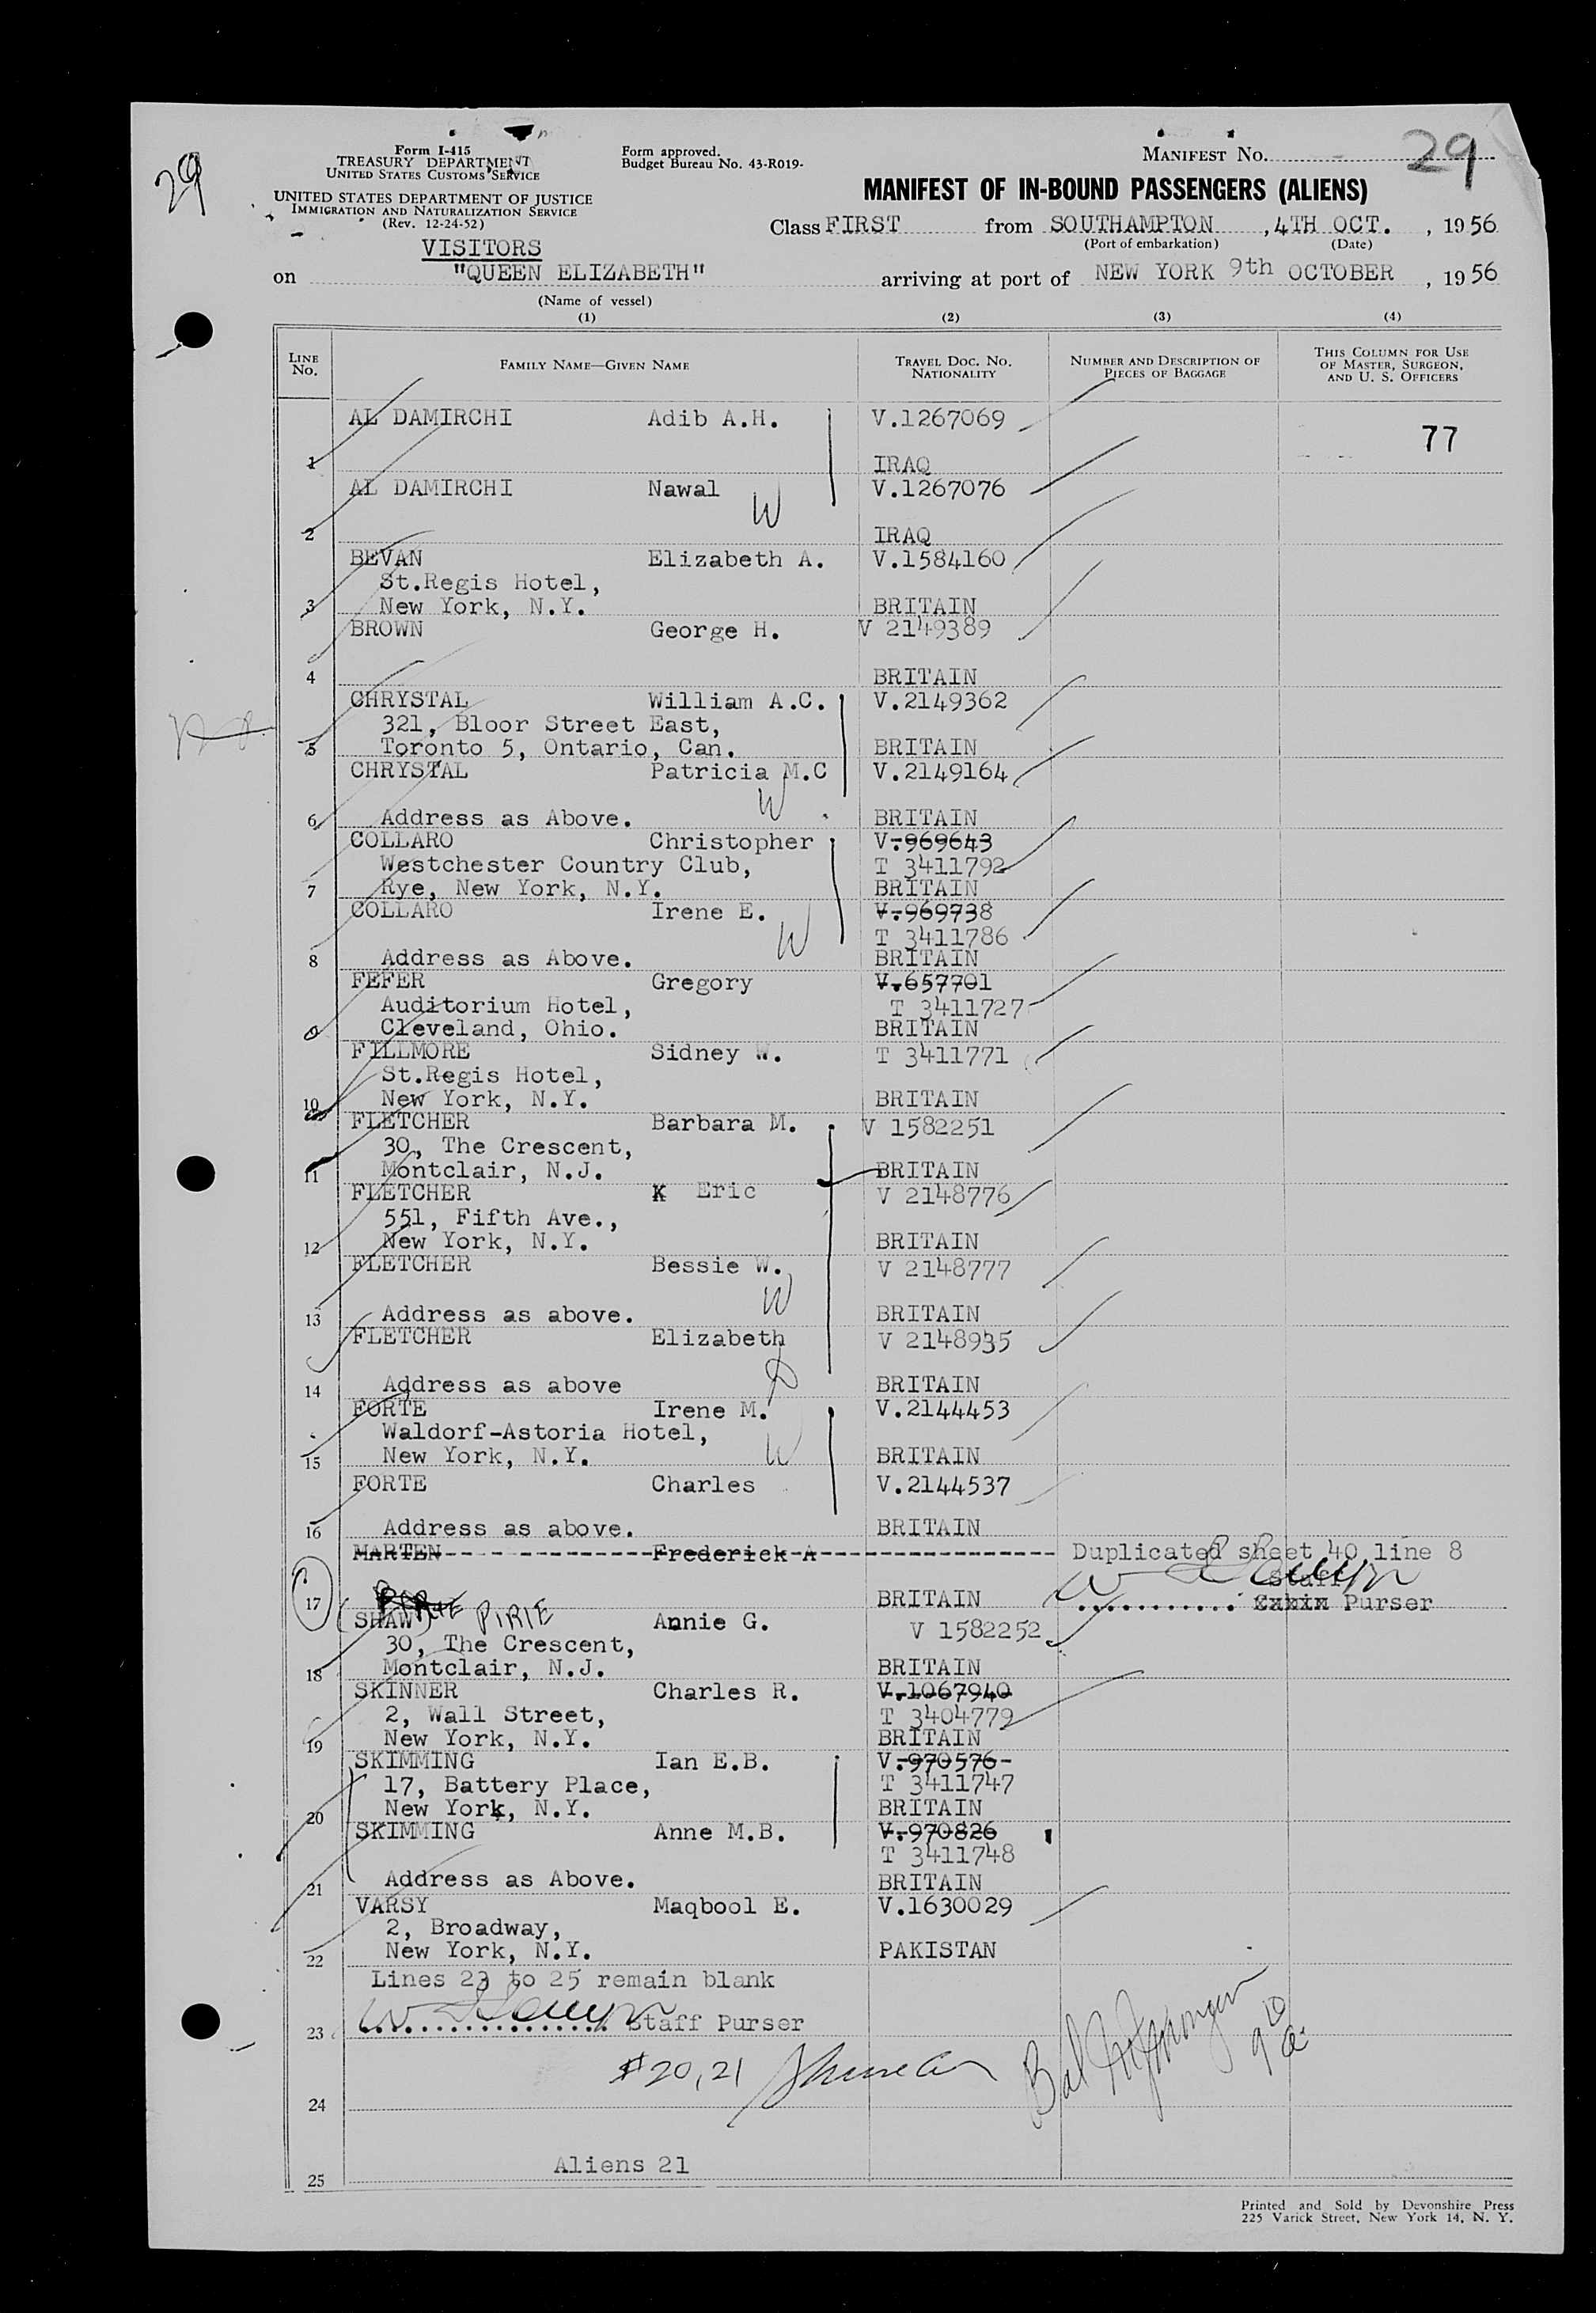 29
Form I-415
TREASURY DEPARTMENT
UNITED STATES CUSTOMS SERVICE
UNITED STATES DEPARTMENT OF JUSTICE
IMMIGRATION AND NATURALIZATION SERVICE
(Rev. 12-24-52)
Form approved.
Budget Bureau No. 43-R019-
MANIFEST NO. 29
MANIFEST OF IN-BOUND PASSENGERS (ALIENS)
Class FIRST from SOUTHAMPTON , 4TH OCT. , 1956
(Port of embarkation) (Date)
VISITORS
on "QUEEN ELIZABETH" arriving at port of NEW YORK 9th OCTOBER , 1956
(Name of vessel)
(1) (2) (3) (4)
LINE NO. FAMILY NAME—GIVEN NAME TRAVEL DOC. NO. NATIONALITY NUMBER AND DESCRIPTION OF PIECES OF BAGGAGE THIS COLUMN FOR USE OF MASTER, SURGEON, AND U. S. OFFICERS
AL DAMIRCHI Adib A.H. V.1267069
77
1 IRAQ
AL DAMIRCHI Nawal V.1267076
W
2 IRAQ
BEVAN Elizabeth A. V.1584160
St.Regis Hotel,
3 New York, N.Y. BRITAIN
BROWN George H. V 2149389
4 BRITAIN
CHRYSTAL William A.C. V.2149362
321, Bloor Street East,
5 Toronto 5, Ontario, Can. BRITAIN
CHRYSTAL Patricia M.C V.2149164
W
6 Address as Above. BRITAIN
COLLARO Christopher V.969643
Westchester Country Club, T 3411792
7 Rye, New York, N.Y. BRITAIN
COLLARO Irene E. V.969738
W T 3411786
8 Address as Above. BRITAIN
FEFER Gregory V.657701
Auditorium Hotel, T 3411727
9 Cleveland, Ohio. BRITAIN
FILLMORE Sidney W. T 3411771
St.Regis Hotel,
10 New York, N.Y. BRITAIN
FLETCHER Barbara M. V 1582251
30, The Crescent,
11 Montclair, N.J. BRITAIN
FLETCHER K Eric V 2148776
551, Fifth Ave.,
12 New York, N.Y. BRITAIN
FLETCHER Bessie W. V 2148777
W
13 Address as above. BRITAIN
FLETCHER Elizabeth V 2148935
14 Address as above BRITAIN
FORTE Irene M. V.2144453
Waldorf-Astoria Hotel,
W
15 New York, N.Y. BRITAIN
FORTE Charles V.2144537
16 Address as above. BRITAIN
MARTEN Frederick A Duplicated sheet 40 line 8
Staff
17 BRITAIN Cabin Purser
(SHAW) PIRIE Annie G. V 1582252
30, The Crescent,
18 Montclair, N.J. BRITAIN
SKINNER Charles R. V.1067940
2, Wall Street, T 3404779
19 New York, N.Y. BRITAIN
SKIMMING Ian E.B. V.970576
17, Battery Place, T 3411747
20 New York, N.Y. BRITAIN
SKIMMING Anne M.B. V.970826
T 3411748
21 Address as Above. BRITAIN
VARSY Maqbool E. V.1630029
2, Broadway,
22 New York, N.Y. PAKISTAN
Lines 23 to 25 remain blank
23 Staff Purser
#20,21
24
Aliens 21
25
Printed and Sold by Devonshire Press
225 Varick Street, New York 14, N. Y.